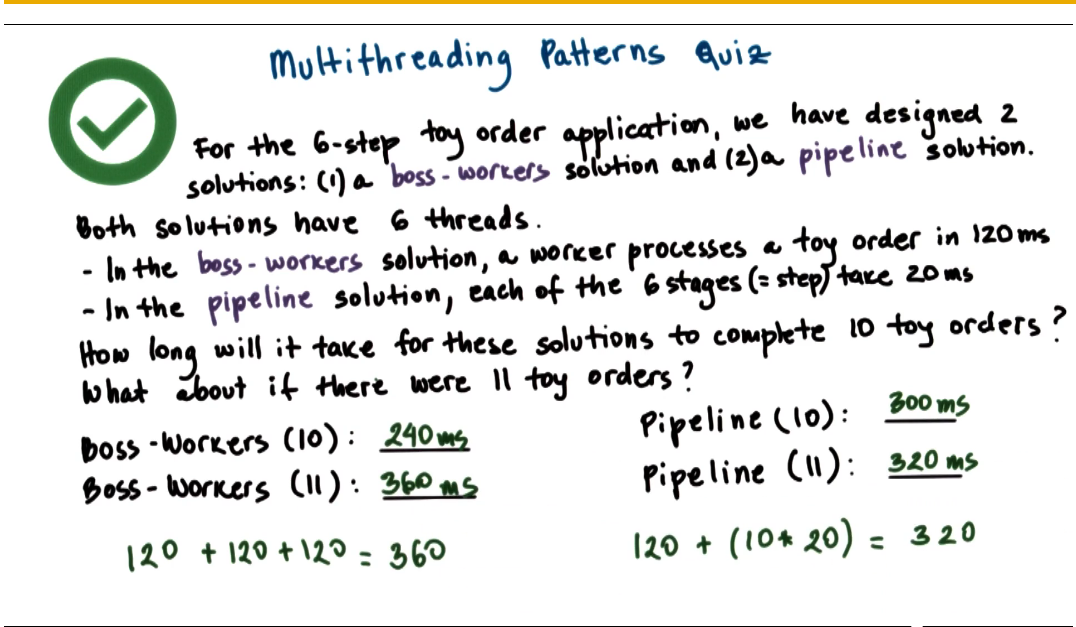 Multithreading Patterns Quiz
For the 6-step toy order application, we have designed 2
solutions: (1) a boss-workers solution and (2) a pipeline solution.
Both solutions have 6 threads.
- In the boss-workers solution, a worker processes a toy order in 120 ms
- In the pipeline solution, each of the 6 stages (= step) take 20 ms
How long will it take for these solutions to complete 10 toy orders?
What about if there were 11 toy orders?
Boss-Workers (10): 240 ms
Pipeline (10): 300 ms
Boss-Workers (11): 360 ms
Pipeline (11): 320 ms
120 + 120 + 120 = 360
120 + (10 * 20) = 320